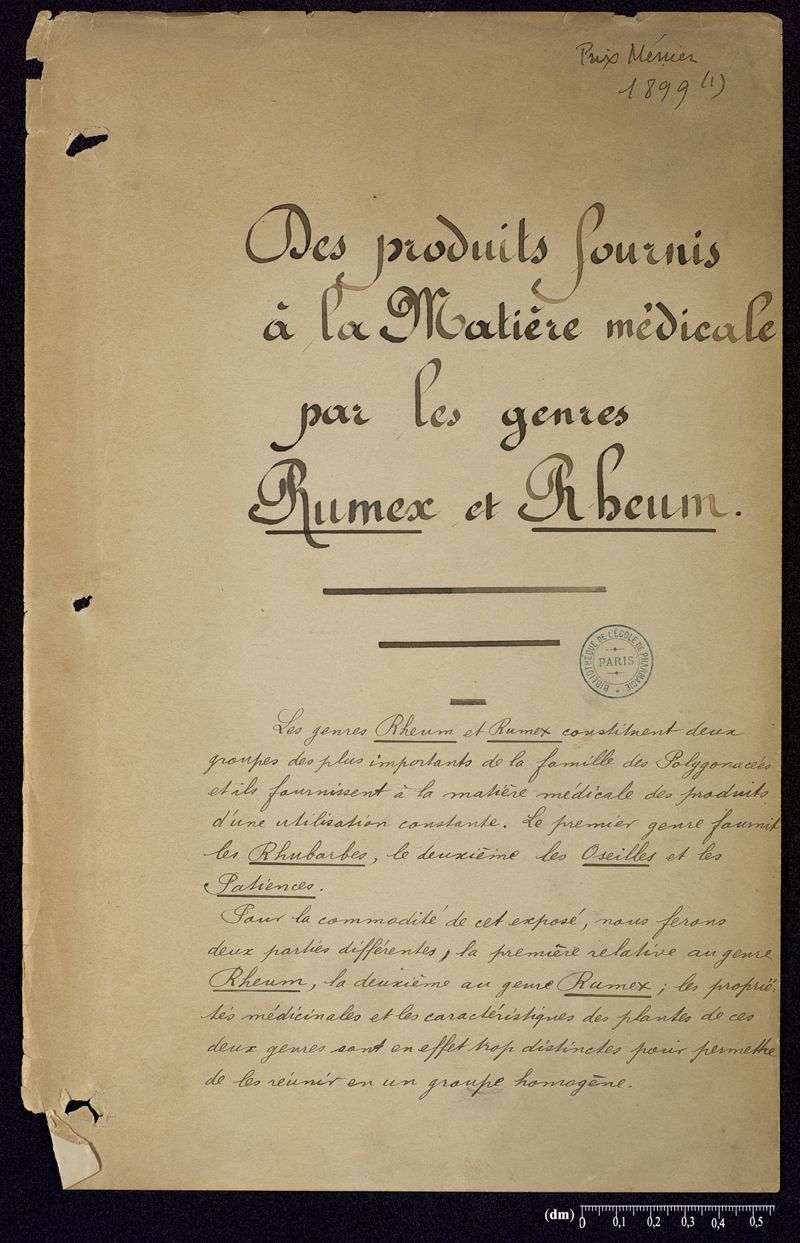 Prix Ménier
1899 (1)
Des produits fournis
à la Matière médicale
par les genres
Rumex et Rheum.
BIBLIOTHÈQUE DE L'ÉCOLE DE PHARMACIE
PARIS
Les genres Rheum et Rumex constituent deux
groupes des plus importants de la famille des Polygonacées
et ils fournissent à la matière médicale des produits
d'une utilisation constante. Le premier genre fournit
les Rhubarbes, le deuxième les Oseilles et les
Patiences.
Pour la commodité de cet exposé, nous ferons
deux parties différentes, la première relative au genre
Rheum, la deuxième au genre Rumex ; les proprié-
tés médicinales et les caractéristiques des plantes de ces
deux genres sont en effet trop distinctes pour permettre
de les réunir en un groupe homogène.
(dm) 0 0,1 0,2 0,3 0,4 0,5